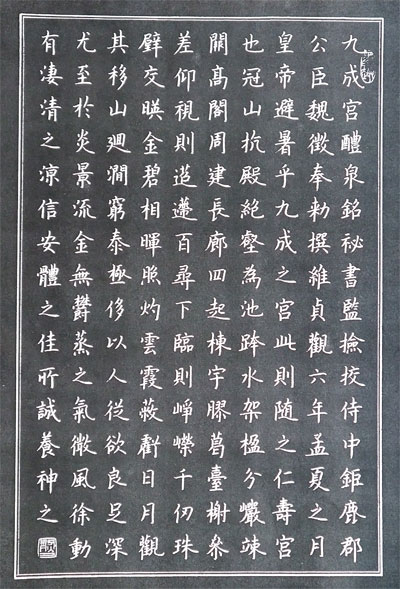 九成宮醴泉銘祕書監撿挍侍中鉅鹿郡
公臣魏徵奉勅撰維貞觀六年孟夏之月
皇帝避暑乎九成之宮此則随之仁壽宮
也冠山抗殿絕壑為池跨水架楹分巖竦
闕髙閣周建長廊四起棟宇膠葛臺榭叅
差仰視則迢遰百尋下臨則崢嶸千仞珠
壁交暎金碧相暉照灼雲霞蔽虧日月觀
其移山廻澗窮泰極侈以人從欲良足深
尤至於炎景流金無欝蒸之氣微風徐動
有淒清之涼信安體之佳所誠養神之